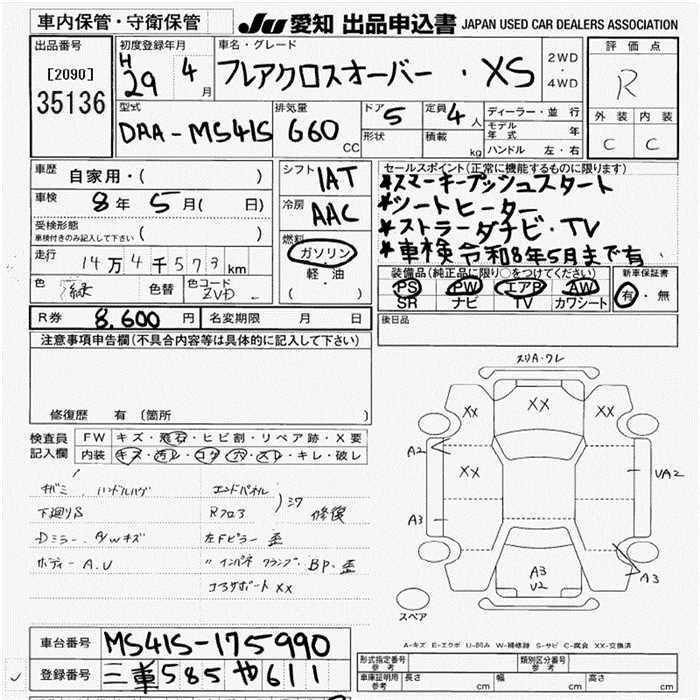 車内保管・守衛保管
JU 愛知 出品申込書 JAPAN USED CAR DEALERS ASSOCIATION
出品番号
[2090]
35136
初度登録年月
H
29 4月
車名・グレード
フレアクロスオーバー・XS
2WD
・
4WD
評価点
R
外装 内装
C C
型式
DAA-MS41S
排気量
660 CC
ドア 5
形状
定員 4人
積載 kg
ディーラー・並行
モデル年式 年
ハンドル 左・右
車歴 自家用・( )
車検 8年 5月( 日)
受検形態
車検付きのみ記入して下さい ( )
走行 14万4千573km
色 緑 色替 色コード ZVD
シフト IAT
冷房 AAC
燃料
ガソリン
軽・油
( )
セールスポイント(正常に機能するものに限ります)
*スマーキープッシュスタート
*シートヒーター
*ストラーダナビ・TV
*車検令和8年5月まで有
装備品(純正品に限り○をつけてください)
PS PW エアB AW
SR ナビ TV カワシート
新車保証書
有・無
R券 8,600円 名変期限 月 日
後日品
注意事項申告欄(不具合内容等は具体的に記入して下さい)
修復歴 有 (箇所 )
検査員記入欄
FW キズ・飛石・ヒビ割・リペア跡・X要
内装 キズ・汚レ・コゲ・穴・スレ・キレ・破レ
ネバミ ハンドルハゲ
下廻りS
Dミラー A/Wキズ
ボディー A.U
エンドパネル
Rフロア
)シワ 修復
左Fピラー 歪
〃インパネ クランプ BP・歪
コアサポート XX
スリA・ワレ
XX XX XX
A2 XX UA2
A3
A3
A3
U2
スペア
A-キズ E-エクボ U-凹み W-補修跡 S-サビ C-腐食 XX-交換済
車台番号 MS41S-175990
登録番号 三重585や611
形式指定番号
参考
類別区分番号
参考
車庫証明用
参考
長さ cm 幅 cm 高さ cm